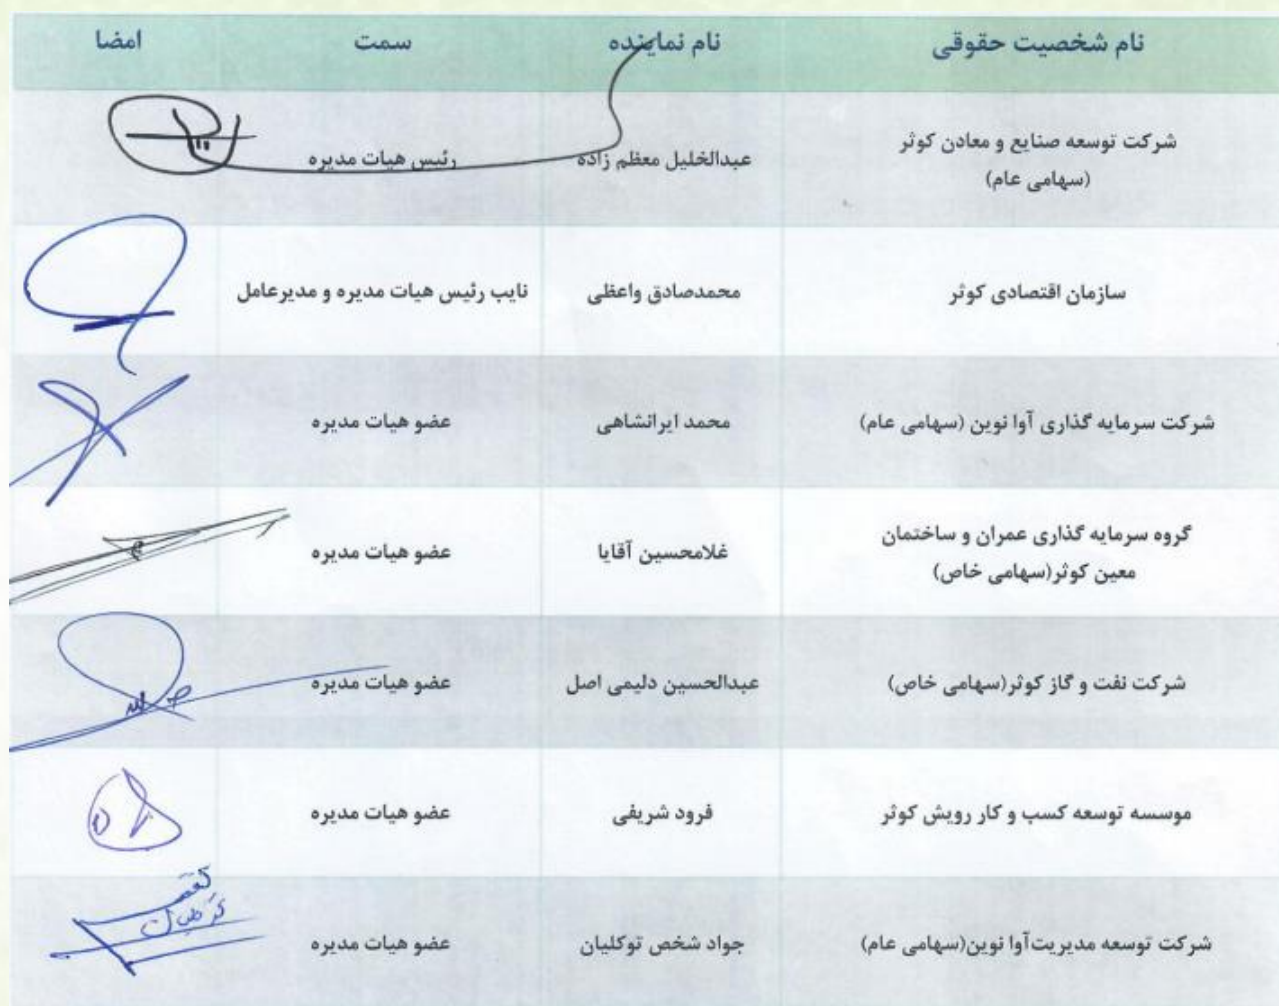 نام شخصیت حقوقی نام نماینده سمت امضا
شرکت توسعه صنایع و معادن کوثر
(سهامی عام) عبدالخلیل معظم زاده رئیس هیات مدیره
سازمان اقتصادی کوثر محمدصادق واعظی نایب رئیس هیات مدیره و مدیرعامل
شرکت سرمایه گذاری آوا نوین (سهامی عام) محمد ایرانشاهی عضو هیات مدیره
گروه سرمایه گذاری عمران و ساختمان
معین کوثر(سهامی خاص) غلامحسین آقایا عضو هیات مدیره
شرکت نفت و گاز کوثر(سهامی خاص) عبدالحسین دلیمی اصل عضو هیات مدیره
موسسه توسعه کسب و کار رویش کوثر فرود شریفی عضو هیات مدیره
شرکت توسعه مدیریت‌آوا نوین(سهامی عام) جواد شخص توکلیان عضو هیات مدیره